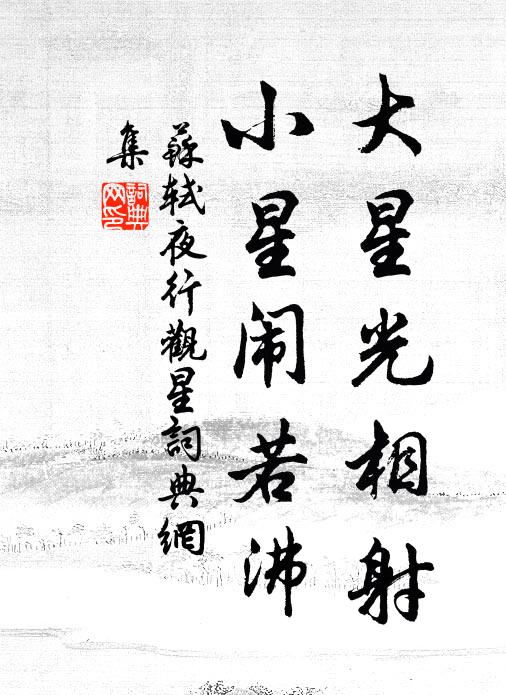 大星光相射
小星闹若沸
蘇軾夜行觀星詞典網
集
詞典
网印